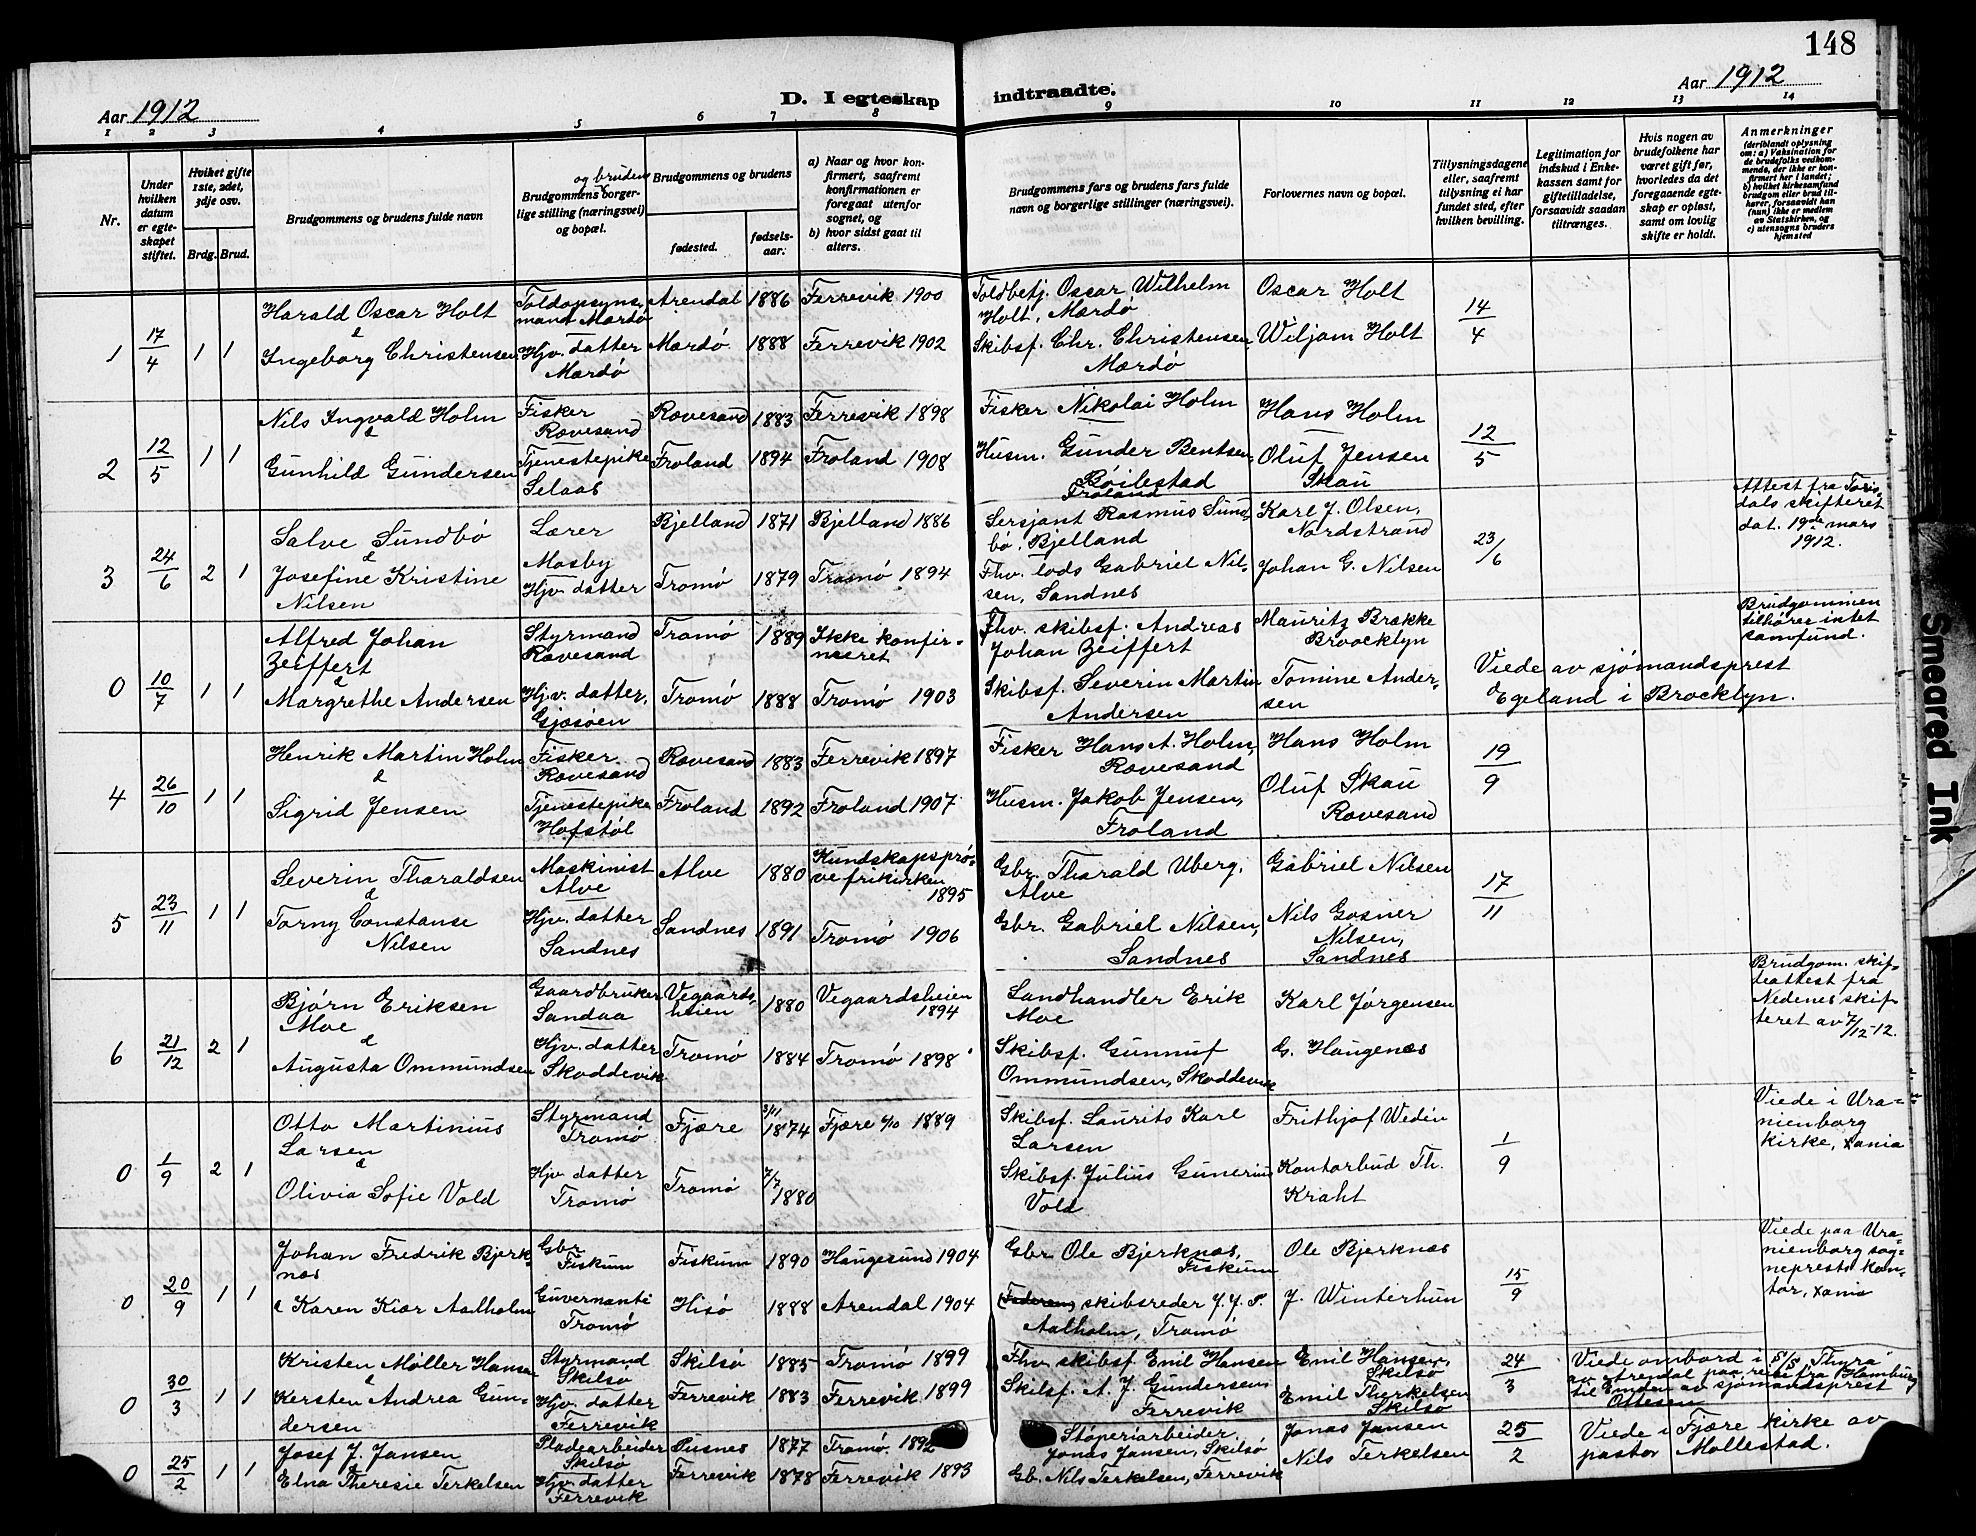 148
Aar 1912
D. I egteskap indtraadte.
Aar 1912
1 2 3 4 5 6 7 8 9 10 11 12 13 14
Nr.
Under hvilken datum er egteskapet stiftet.
Hvilket gifte 1ste, 2det, 3dje osv.
Brdg. Brud.
Brudgommens og brudens fulde navn
og brudens
Brudgommens borgerlige stilling (næringsvei) og bopæl.
Brudgommens og brudens
fødested.
fødselsaar.
a) Naar og hvor konfirmert, saafremt konfirmationen er foregaat utenfor sognet, og
b) hvor sidst gaat til alters.
Brudgommens fars og brudens fars fulde navn og borgerlige stillinger (næringsvei).
Forlovernes navn og bopæl.
Tillysningsdagene eller, saafremt tillysning ei har fundet sted, efter hvilken bevilling.
Legitimation for indskud i Enkekassen samt for giftetilladelse, forsaavidt saadan tiltrænges.
Hvis nogen av brudefolkene har været gift før, hvorledes da det foregaaende egteskap er opløst, samt om lovlig skifte er holdt.
Anmerkninger
(deriblandt oplysning om: a) Vaksination for de brudefolks vedkommende, der ikke er konfirmert her i landet; b) hvilket kirkesamfund brudgom eller brud tilhører, forsaavidt han (hun) ikke er medlem av Statskirken, og c) utensogns bruders hjemsted
1 17/4 1 1
Harald Oscar Holt
&
Ingeborg Christensen
Toldopsyns, mand Mærdø
Hjv. datter Mærdø
Arendal 1886 Færrevik 1900
Mærdø 1888 Færrevik 1902
Toldbetj. Oscar Wilhelm Holt, Mærdø
Skibsf. Chr. Christensen Mærdø
Oscar Holt
Wiljam Holt
14/4
2 12/5 1 1
Nils Ingvald Holm
&
Gunhild Gundersen
Fisker Rævesand
Tjenestepike Selaas
Rævesand 1883 Færrevik 1898
Froland 1894 Froland 1908
Fisker Nikolai Holm
Husm. Gunder Bentsen, Bøilestad Froland
Hans Holm
Oluf Jensen Skau
12/5
3 24/6 2 1
Salve Sundbø
&
Josefine Kristine Nilsen
Lærer Mosby
Hjv. datter
Bjelland 1871 Bjelland 1886
Tromø 1879 Tromø 1894
Sersjant Rasmus Sundbø, Bjelland
Fhv. lods Gabriel Nilsen, Sandnes
Karl J. Olsen, Nordstrand
Johan G. Nilsen
23/6
Attest fra Torisdals skifteret dat. 19de mars 1912.
0 10/7 1 1
Alfred Johan Zeiffert
&
Margrethe Andersen
Styrmand Rævesand
Hjv. datter, Gjæsøen
Tromø 1889 Ikke konfirmeret
Tromø 1888 Tromø 1903
Fhv. skibsf. Andreas Johan Zeiffert
Skibsf. Severin Martin Andersen
Mauritz Brække Broocklyn
Tomine Andersen
Viede av sjømandsprest Egeland i Brocklyn.
Brudgommen tilhøres intet samfund.
4 26/10 1 1
Henrik Martin Holm
&
Sigrid Jensen
Fisker. Rævesand
Tjenestepike Hofstøl
Rævesand 1883 Færrevik 1897
Froland 1892 Froland 1907
Fisker Hans A. Holm, Rævesand
Husm. Jakob Jensen, Froland
Hans Holm
Oluf Skau Rævesand
19/9
5 23/11 1 1
Severin Tharaldsen
&
Torny Constanse Nilsen
Maskinist Alve
Hjv. datter Sandnes
Alve 1880 Kundskapsprøve frikirken 1895
Sandnes 1891 Tromø 1906
Gbr. Tharald Uberg, Alve
Gbr. Gabriel Nilsen, Sandnes
Gabriel Nilsen
Nils Gosner Nilsen, Sandnes
17/11
6 21/12 2 1
Bjørn Eriksen Moe
&
Augusta Ommundsen
Gaardbruker Sandaa
Hjv. datter Skoddevik
Vegaardsheien 1880 Vegaardsheien 1894
Tromø 1884 Tromø 1898
Landhandler Erik Moe
Skibsf. Gunnuf Ommundsen, Skoddevik
Karl Jørgensen
G. Haugenæs
Brudgom. skifteattest fra Nedenes skifteret av 7/12-12.
0 1/9 2 1
Otto Martinius Larsen
&
Olivia Sofie Vold
Styrmand Tromø
Hjv datter Tromø
Fjære 3/11 1874 Fjære 6/10 1889
Tromø 7/7 1880
Skibsf. Laurits Karl Larsen
Skibsf. Julius Gunerius Vold
Frithjof Wedin
Kontorbud Th. Kraht
1/9
Viede i Uranienborg kirke, Xania
0 20/9 1 1
Johan Fredrik Bjerknæs
& Karen Kiær Aalholm
Gbr. Fiskum
Guvernante Tromø
Fiskum 1890 Haugesund 1904
Hisø 1888 Arendal 1904
Gbr Ole Bjerknæs, Fiskum
skibsreder J. J. P. Aalholm, Tromø
Ole Bjerknæs
J. Winterhun
15/9
Viede paa Uranienborg sogneprests kontor, Xania
0 30/3 1 1
Kristen Møller Hansen
&
Kersten Andrea Gundersen
Styrmand Skilsø
Hjv. datter Færrevik
Skilsø 1885 Tromø 1899
Færrevik 1883 Færrevik 1899
Fhv. skibsf. Emil Hansen
Skibsf. A. J. Gundersen, Færrevik
Emil Hansen, Skilsø
Emil Therkelsen Skilsø
24/3
Viede ombord i S/S "Thyra" av Arendal paa reise fra Hamburg til Emden av sjømandsprest Ottesen
0 25/2 1 1
Josef J. Jansen
&
Elna Theresie Terkelsen
Pladearbeider Skilsø
Hjv. datter Færrevik
Pusnes 1877 Tromø 1892
Færrevik 1878 Færrevik 1893
Støperiarbeider Jonas Jansen, Skilsø
Gb. Nils Terkelsen, Færrevik
Jonas Jansen
Nils Terkelsen
25/2
Viede i Fjære kirke av pastor Mollestad.
Smeared Ink